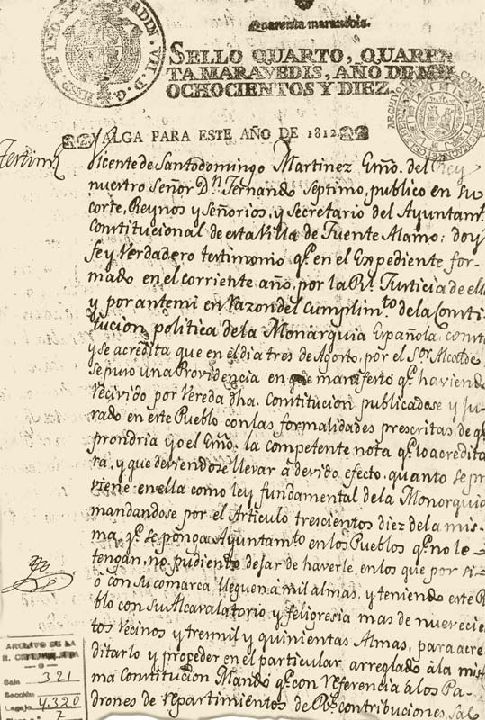 Quarenta maravedis.
SELLO QUARTO, QUAREN
TA MARAVEDIS, AÑO DE MIL
OCHOCIENTOS Y DIEZ.
VALGA PARA ESTE AÑO DE 1812
Vicente de Santodomingo Martinez Essno. del Rey
nuestro Señor Dn. Fernando Septimo, publico en su
corte, Reynos y Señorios, y Secretario del Ayuntamto
Constitucional de esta Villa de Fuente Alamo: doy
fe y Verdadero testimonio qe. en el Expediente for-
mado en el corriente año, por la Rl. Justicia de ella
y por ante mi en razon del Cumplimto. de la Consti-
tucion politica de la Monarquia Española, consta
y se acredita que en el dia tres de Agosto, por el Sor. Alcalde
se puso una Providencia en que manifesto qe. haviendo
recivido por Vereda dha. Constitucion publicadose y ju-
rado en este Pueblo con las formalidades prescritas de qe.
prondria Yo el Essno. la competente nota qe. lo acredita-
ra, y que deviendose llevar a devido efecto, quanto se pre
viene en ella como ley fundamental de la Monarquia
mandandose por el Articulo trescientos diez de la mis-
ma, qe. se ponga Ayuntamto en los Pueblos qe. no le
tengan, no pudiendo dejar de haverle, en los que por si
ó con su comarca lleguen á mil almas, y teniendo este Pue
blo con su Alcavalatorio y feligresia mas de nuevecien
tos Vecinos y tres mil y quinientas Almas, para acre
ditarlo y proceder en el particular, arreglado á la mis
ma Constitucion Mandó qe. con referencia á los Pa-
drones de repartimientos de Rs. contribuciones, Sal
ARCHIVO DE LA
Sala 391
Sección
Legajo 4.320
2